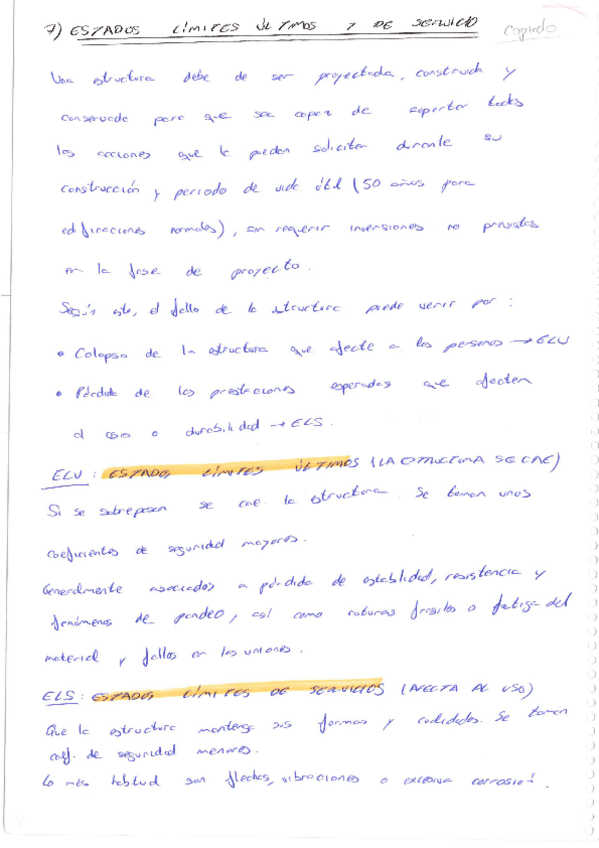 7) ESTADOS LÍMITES ÚLTIMOS Y DE SERVICIO
Copiado
Una estructura debe de ser proyectada, construida y
conservada para que sea capaz de soportar todas
las acciones que le puedan solicitar durante su
construcción y periodo de vida útil (50 años para
edificaciones normales), sin requerir inversiones no previstas
en la fase de proyecto.
Según esto, el fallo de la estructura puede venir por:
• Colapso de la estructura que afecte a las personas → ELU
• Pérdida de las prestaciones esperadas que afecten
al uso o durabilidad → ELS.
ELU: ESTADOS LÍMITES ÚLTIMOS (LA ESTRUCTURA SE CAE)
Si se sobrepasan se cae la estructura. Se toman unos
coeficientes de seguridad mayores.
Generalmente asociados a pérdida de estabilidad, resistencia y
fenómenos de pandeo, así como roturas frágiles o fatiga del
material y fallos en las uniones.
ELS: ESTADOS LÍMITES DE SERVICIOS (AFECTA AL USO)
Que la estructura mantenga sus formas y cualidades. Se toman
coef. de seguridad menores.
Lo más habitual son flechas, vibraciones o excesiva corrosión.